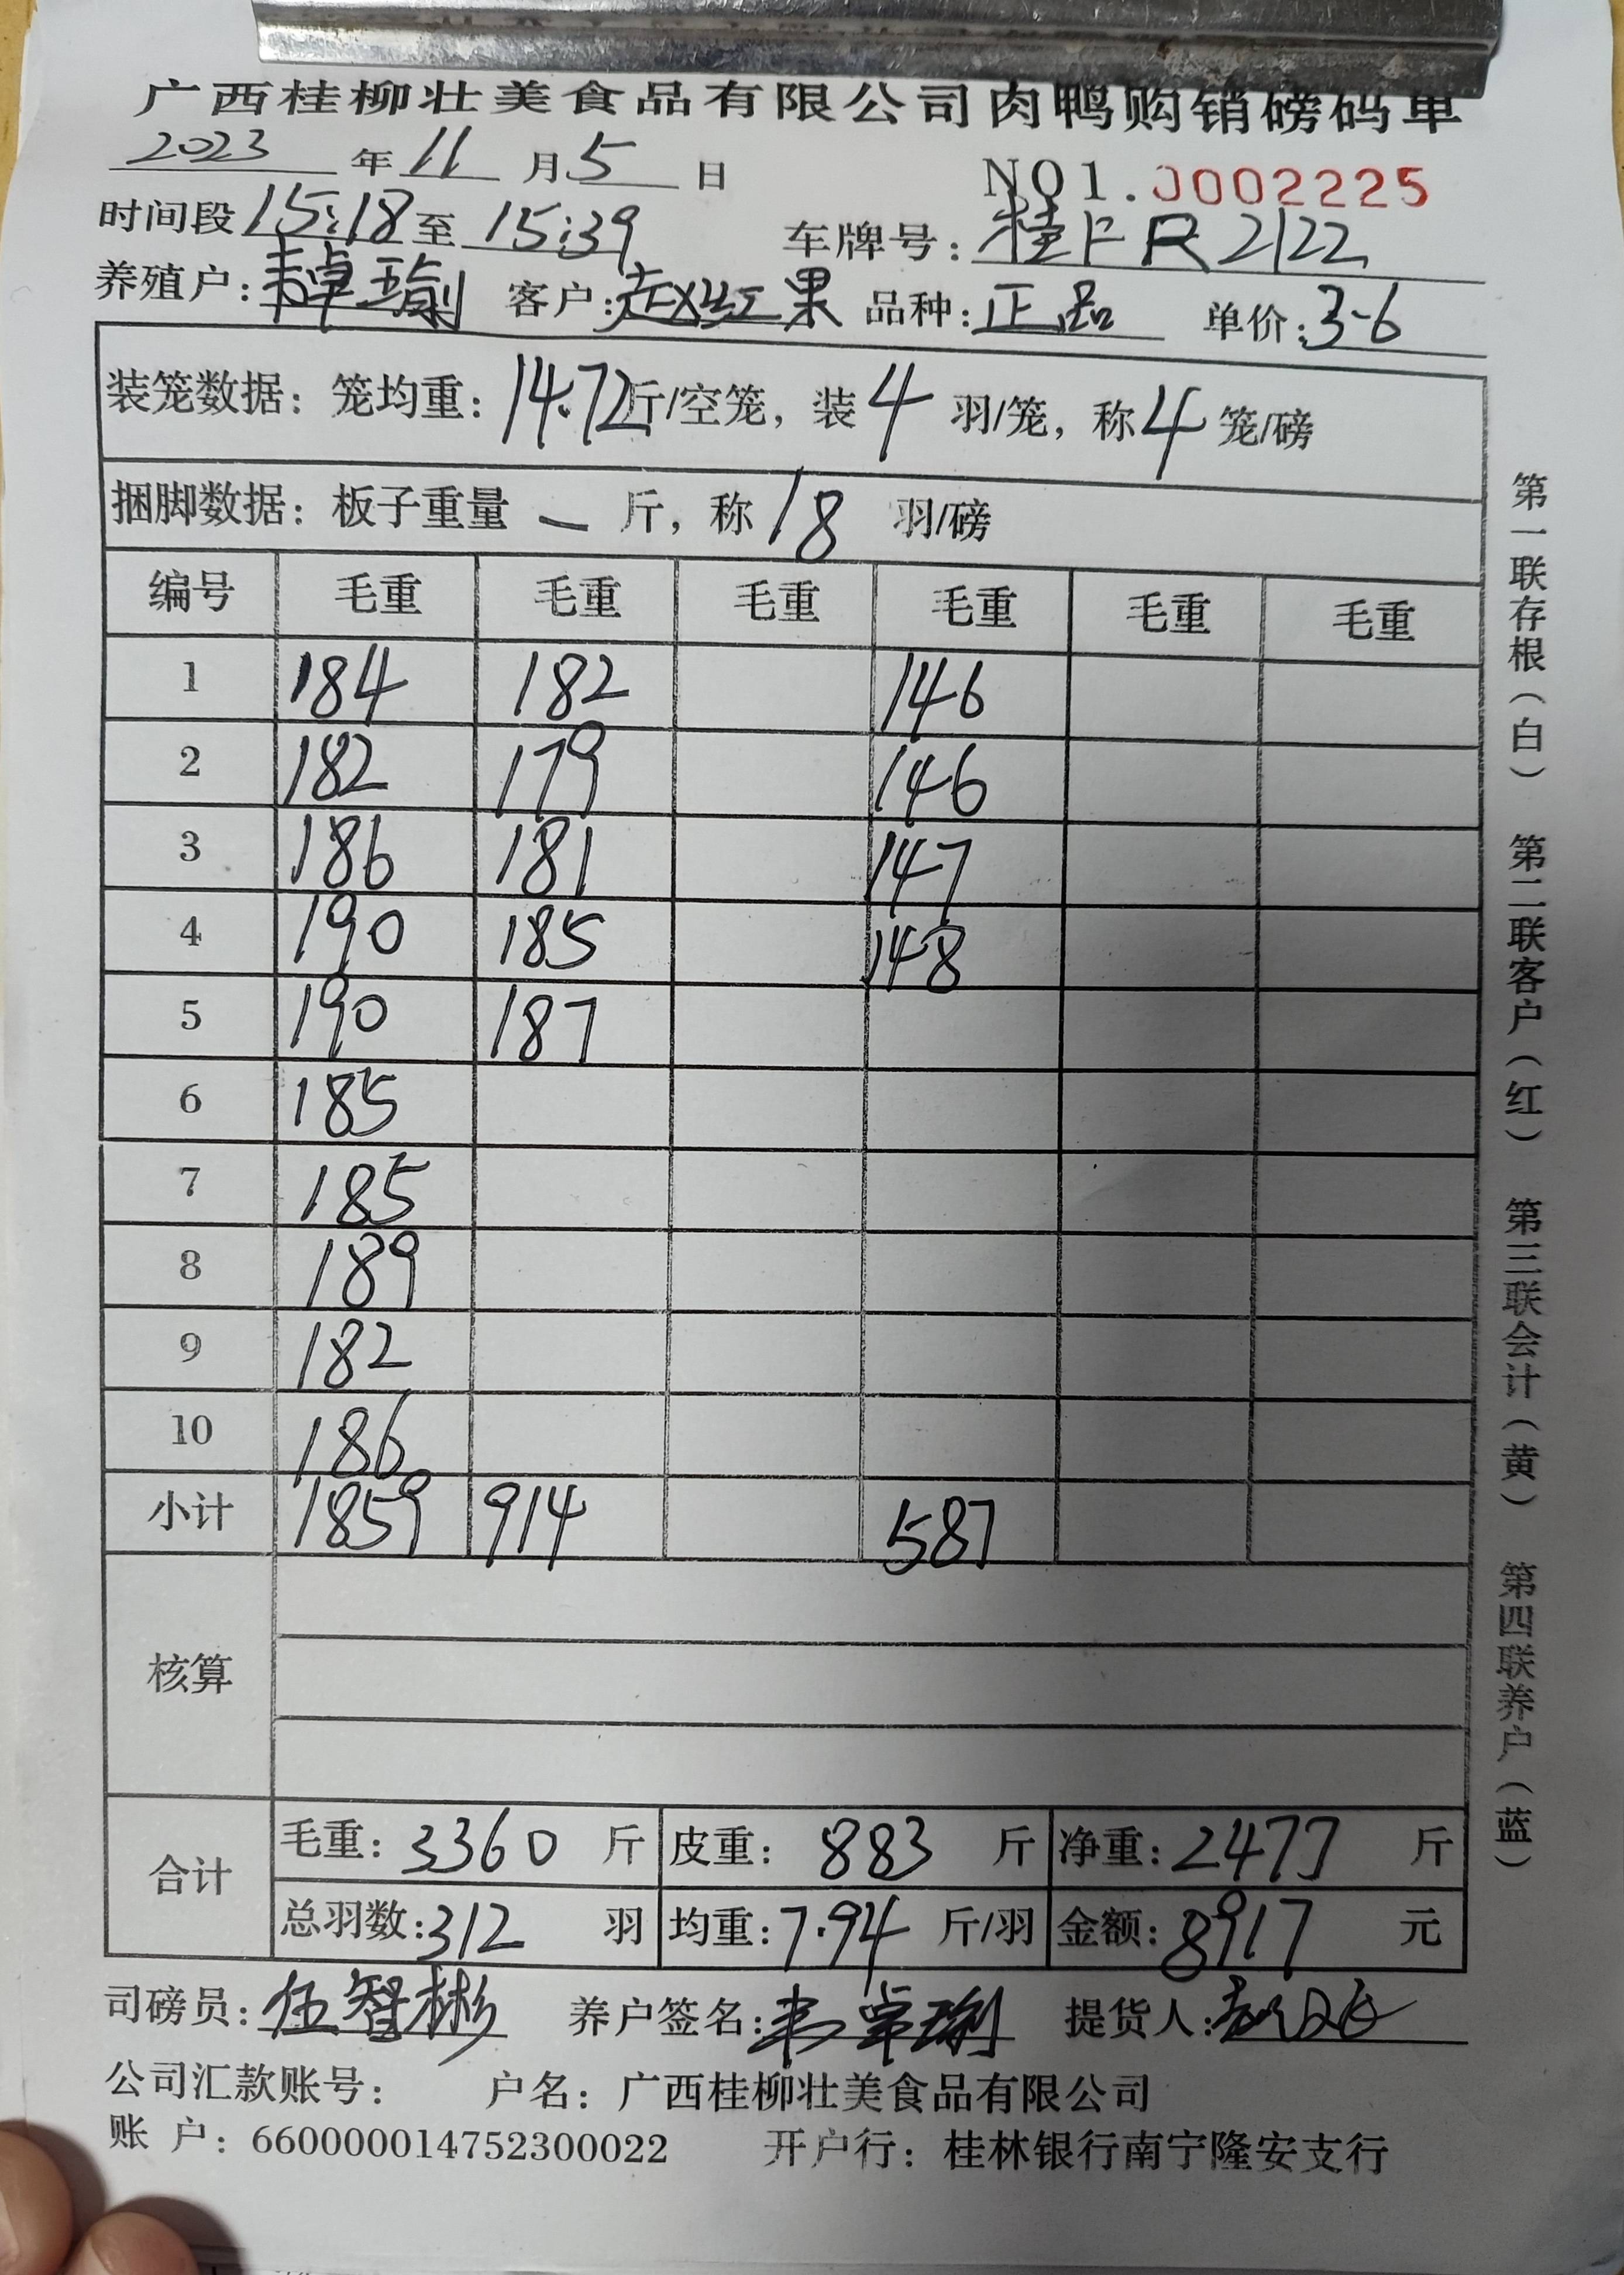 广西桂柳壮美食品有限公司肉鸭购销磅码单
2023 年 11 月 5 日 NO1.0002225
时间段 15:18 至 15:39 车牌号: 桂F R2122
养殖户: 韦卓瑜 客户: 赵红果 品种: 正品 单价: 3-6
装笼数据: 笼均重: 14.72斤/空笼, 装 4 羽/笼, 称 4 笼/磅
捆脚数据: 板子重量 — 斤, 称 18 羽/磅
编号 毛重 毛重 毛重 毛重 毛重 毛重
1 184 182 146
2 182 179 146
3 186 181 147
4 190 185 148
5 190 187
6 185
7 185
8 189
9 182
10 186
小计 1859 914 587
核算
合计
毛重: 3360 斤 皮重: 883 斤 净重: 2477 斤
总羽数: 312 羽 均重: 7.94 斤/羽 金额: 8917 元
司磅员: 伍智彬 养户签名: 韦卓瑜 提货人:
公司汇款账号: 户名: 广西桂柳壮美食品有限公司
账 户: 660000014752300022 开户行: 桂林银行南宁隆安支行
第一联存根(白) 第二联客户(红) 第三联会计(黄) 第四联养户(蓝)